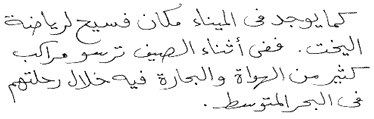 كما يوجد في الميناء مكان فسيح لرياضة
اليخت. ففي أثناء الصيف ترسو مراكب
كثير من الهواة والبحارة فيه خلال رحلتهم
في البحر المتوسط.